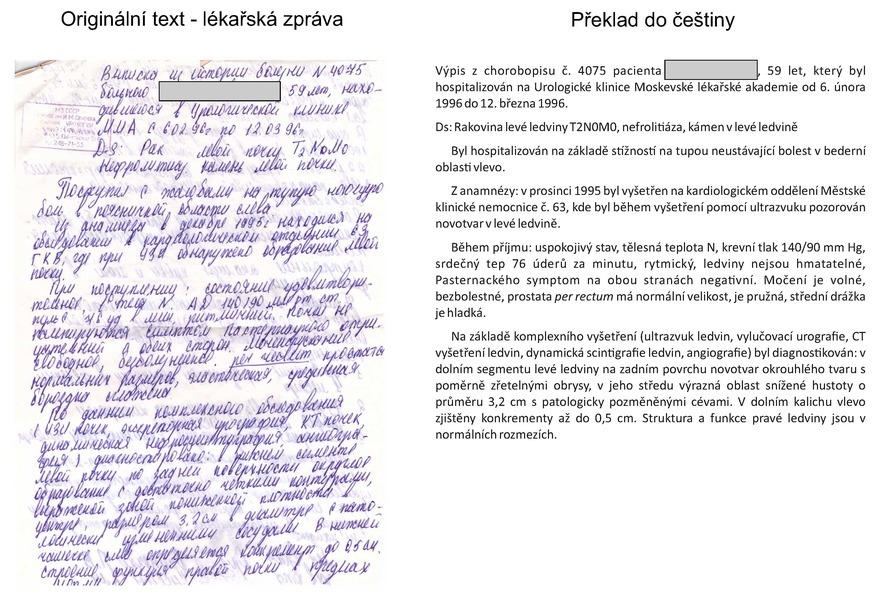 Originální text - lékařská zpráva
Выписка из истории болезни N 4075
больного 59 лет, нахо-
дившегося в Урологической клинике
ММА с 6.02.96г по 12.03.96г.
Ds: Рак левой почки T2N0M0
Нефролитиаз, камень левой почки.
Поступил с жалобами на тупую ноющую
боль в поясничной области слева.
Из анамнеза: в декабре 1995г. находился на
обследовании в кардиологическом отделении 63
ГКВ, где при УЗИ обнаружено образование левой
почки.
При поступлении: состояние удовлетвори-
тельное, t тела N. АД 140/90 мм рт. ст.
пульс 76 уд в мин, ритмичный. Почки не
пальпируются, симптом Пастернацкого отри-
цательный с обеих сторон. Мочеиспускание
свободное, безболезненное. per rectum простата
нормальных размеров, эластическая, срединная
бороздка сглажена.
По данным комплексного обследования
(УЗИ почек, экскреторная урография, КТ почек,
динамическая нефросцинтиграфия, ангиогра-
фия) диагностировано: в нижнем сегменте
левой почки по задней поверхности округлое
образование с достаточно четкими контурами,
выраженной зоной пониженной плотности в
центре, размером 3,2 см в диаметре с пато-
логически измененными сосудами. В нижней
чашечке слева определяется конкремент до 0,5 см.
строение, функция правой почки в пределах
Překlad do češtiny
Výpis z chorobopisu č. 4075 pacienta , 59 let, který byl
hospitalizován na Urologické klinice Moskevské lékařské akademie od 6. února
1996 do 12. března 1996.
Ds: Rakovina levé ledviny T2N0M0, nefrolitiáza, kámen v levé ledvině
Byl hospitalizován na základě stížností na tupou neustávající bolest v bederní
oblasti vlevo.
Z anamnézy: v prosinci 1995 byl vyšetřen na kardiologickém oddělení Městské
klinické nemocnice č. 63, kde byl během vyšetření pomocí ultrazvuku pozorován
novotvar v levé ledvině.
Během příjmu: uspokojivý stav, tělesná teplota N, krevní tlak 140/90 mm Hg,
srdečný tep 76 úderů za minutu, rytmický, ledviny nejsou hmatatelné,
Pasternackého symptom na obou stranách negativní. Močení je volné,
bezbolestné, prostata per rectum má normální velikost, je pružná, střední drážka
je hladká.
Na základě komplexního vyšetření (ultrazvuk ledvin, vylučovací urografie, CT
vyšetření ledvin, dynamická scintigrafie ledvin, angiografie) byl diagnostikován: v
dolním segmentu levé ledviny na zadním povrchu novotvar okrouhlého tvaru s
poměrně zřetelnými obrysy, v jeho středu výrazná oblast snížené hustoty o
průměru 3,2 cm s patologicky pozměněnými cévami. V dolním kalichu vlevo
zjištěny konkrementy až do 0,5 cm. Struktura a funkce pravé ledviny jsou v
normálních rozmezích.